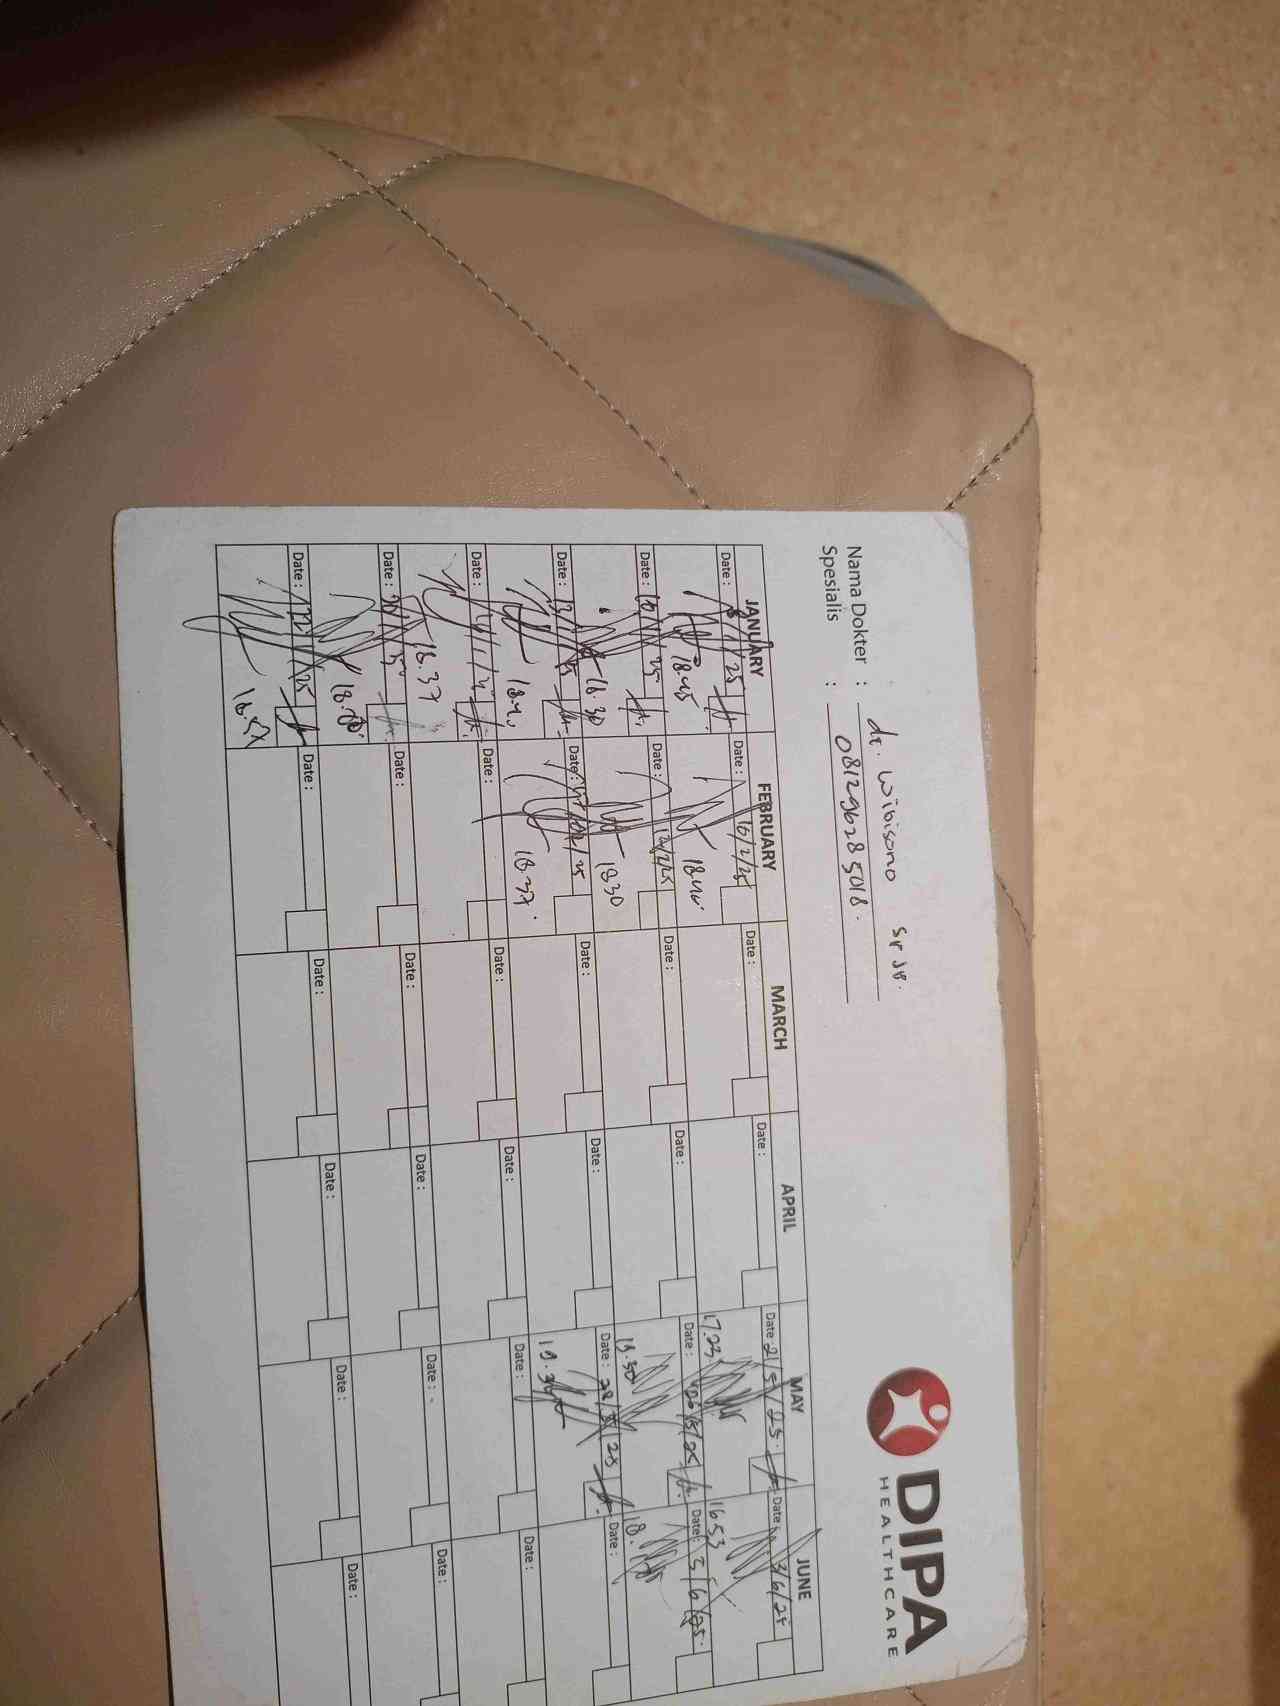 DIPA
HEALTHCARE
Nama Dokter : dr. Wibisono Sp JP.
Spesialis : 081296285018.
JANUARY FEBRUARY MARCH APRIL MAY JUNE
Date : 8/1/25 Date : 10/2/25 Date : Date : Date : 21/5/25. Date : 3/6/25
18.45 18.40. 17.23 16.53
Date : 10/1/25 Date : 12/2/25 Date : Date : Date : 26/5/25 Date : 5/6/25.
18.30 1830 18.30 18.
Date : 13/1/25 Date : /25 Date : Date : Date : 28/5/25 Date :
18.40 18.37. 19.36
Date : Date : Date : Date : Date : Date :
18.37
Date : Date : Date : Date : Date : Date :
Date : 22/1/25 Date : Date : Date : Date : Date :
18.57